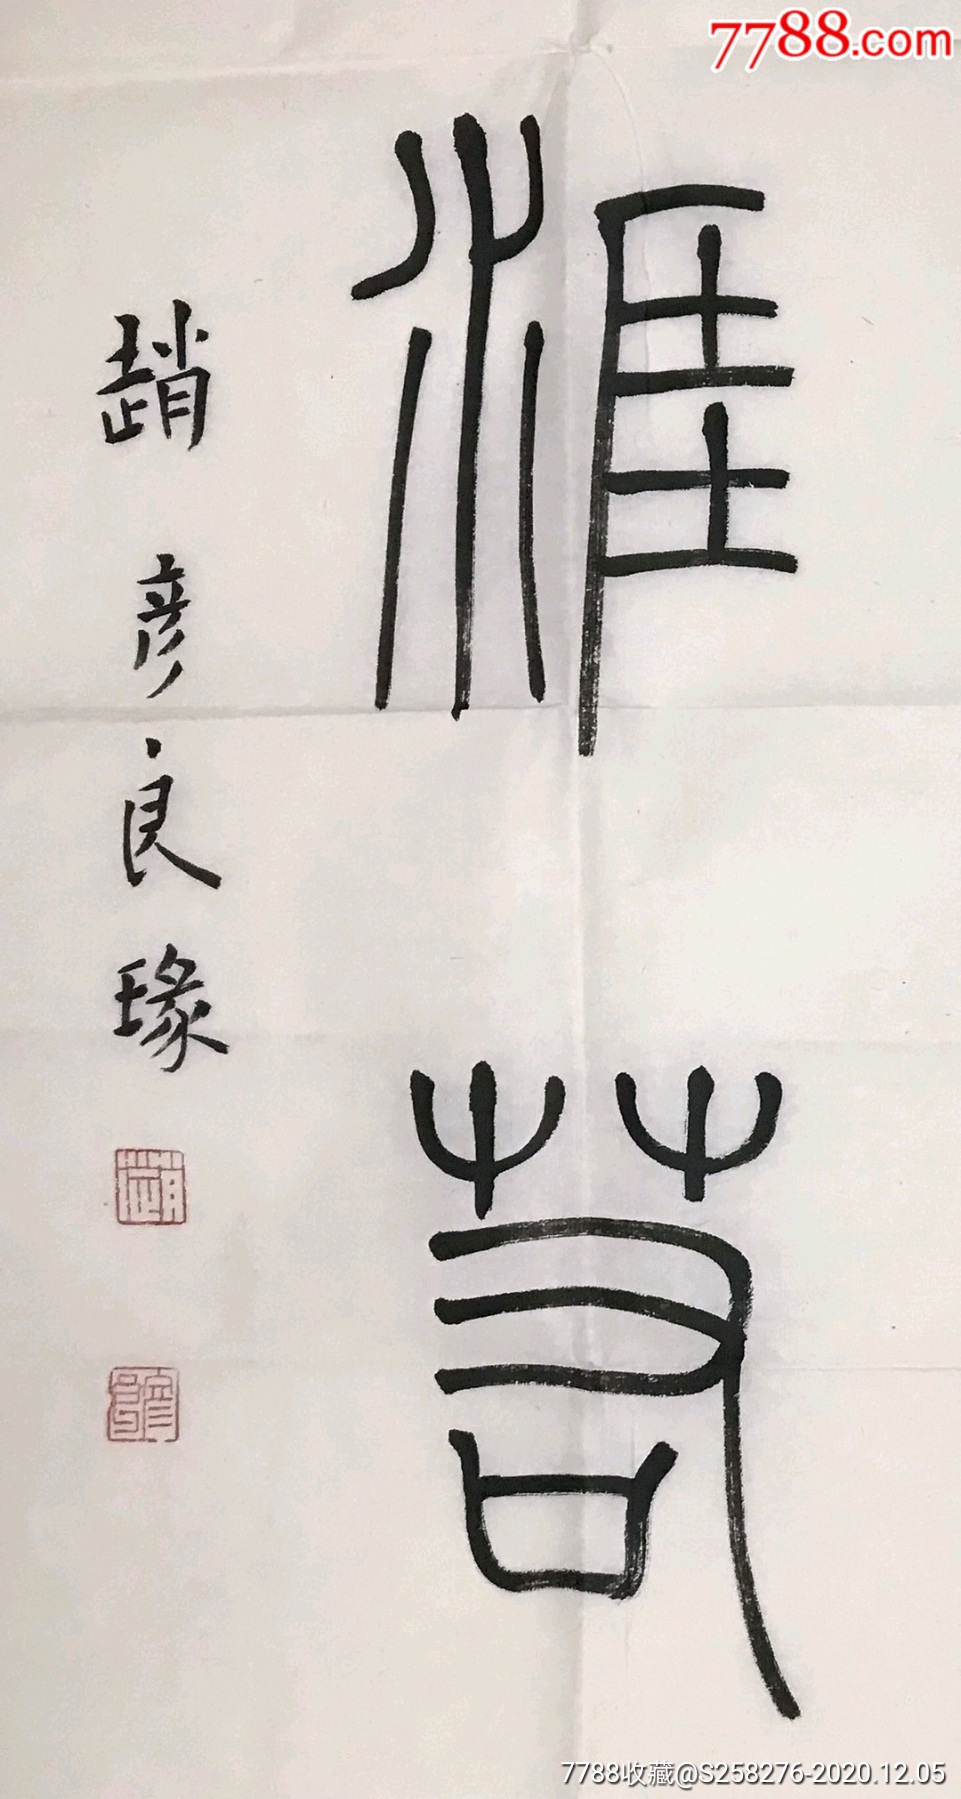 7788.com
涯若
趙彦良瑑
趙
彦良
7788收藏@S258276-2020.12.05